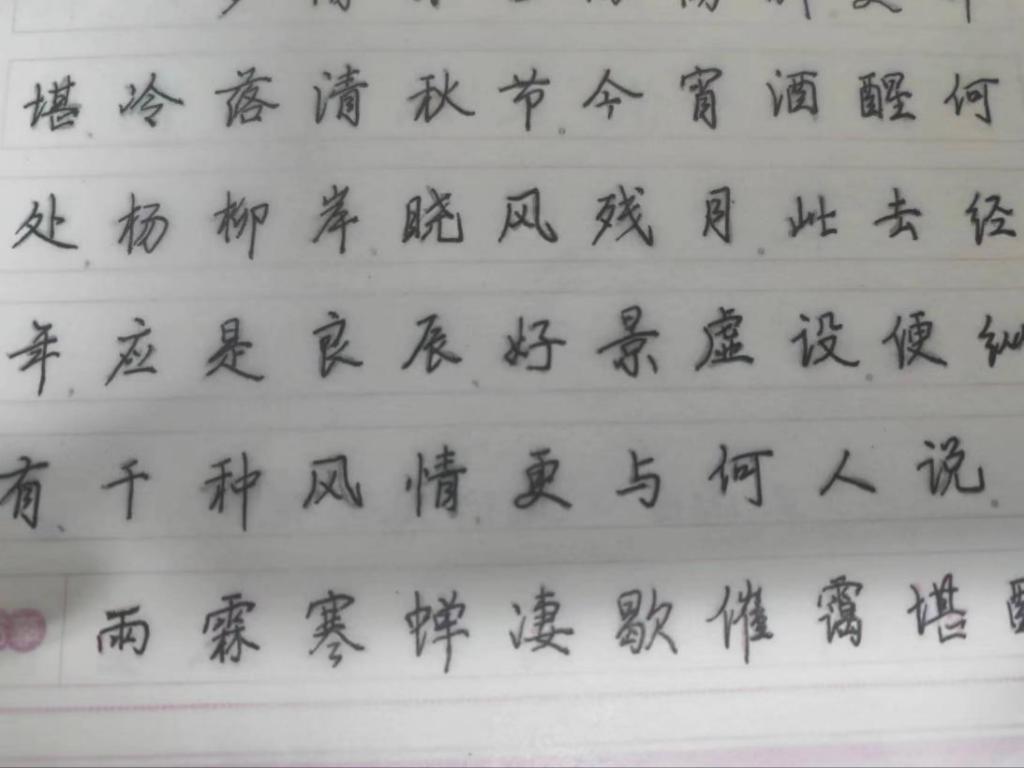 堪冷落清秋节。今宵酒醒何
处，杨柳岸、晓风残月。此去经
年，应是良辰、好景虚设。便纵
有、千种风情，更与何人说。
雨霖寒蝉凄歇催霭堪